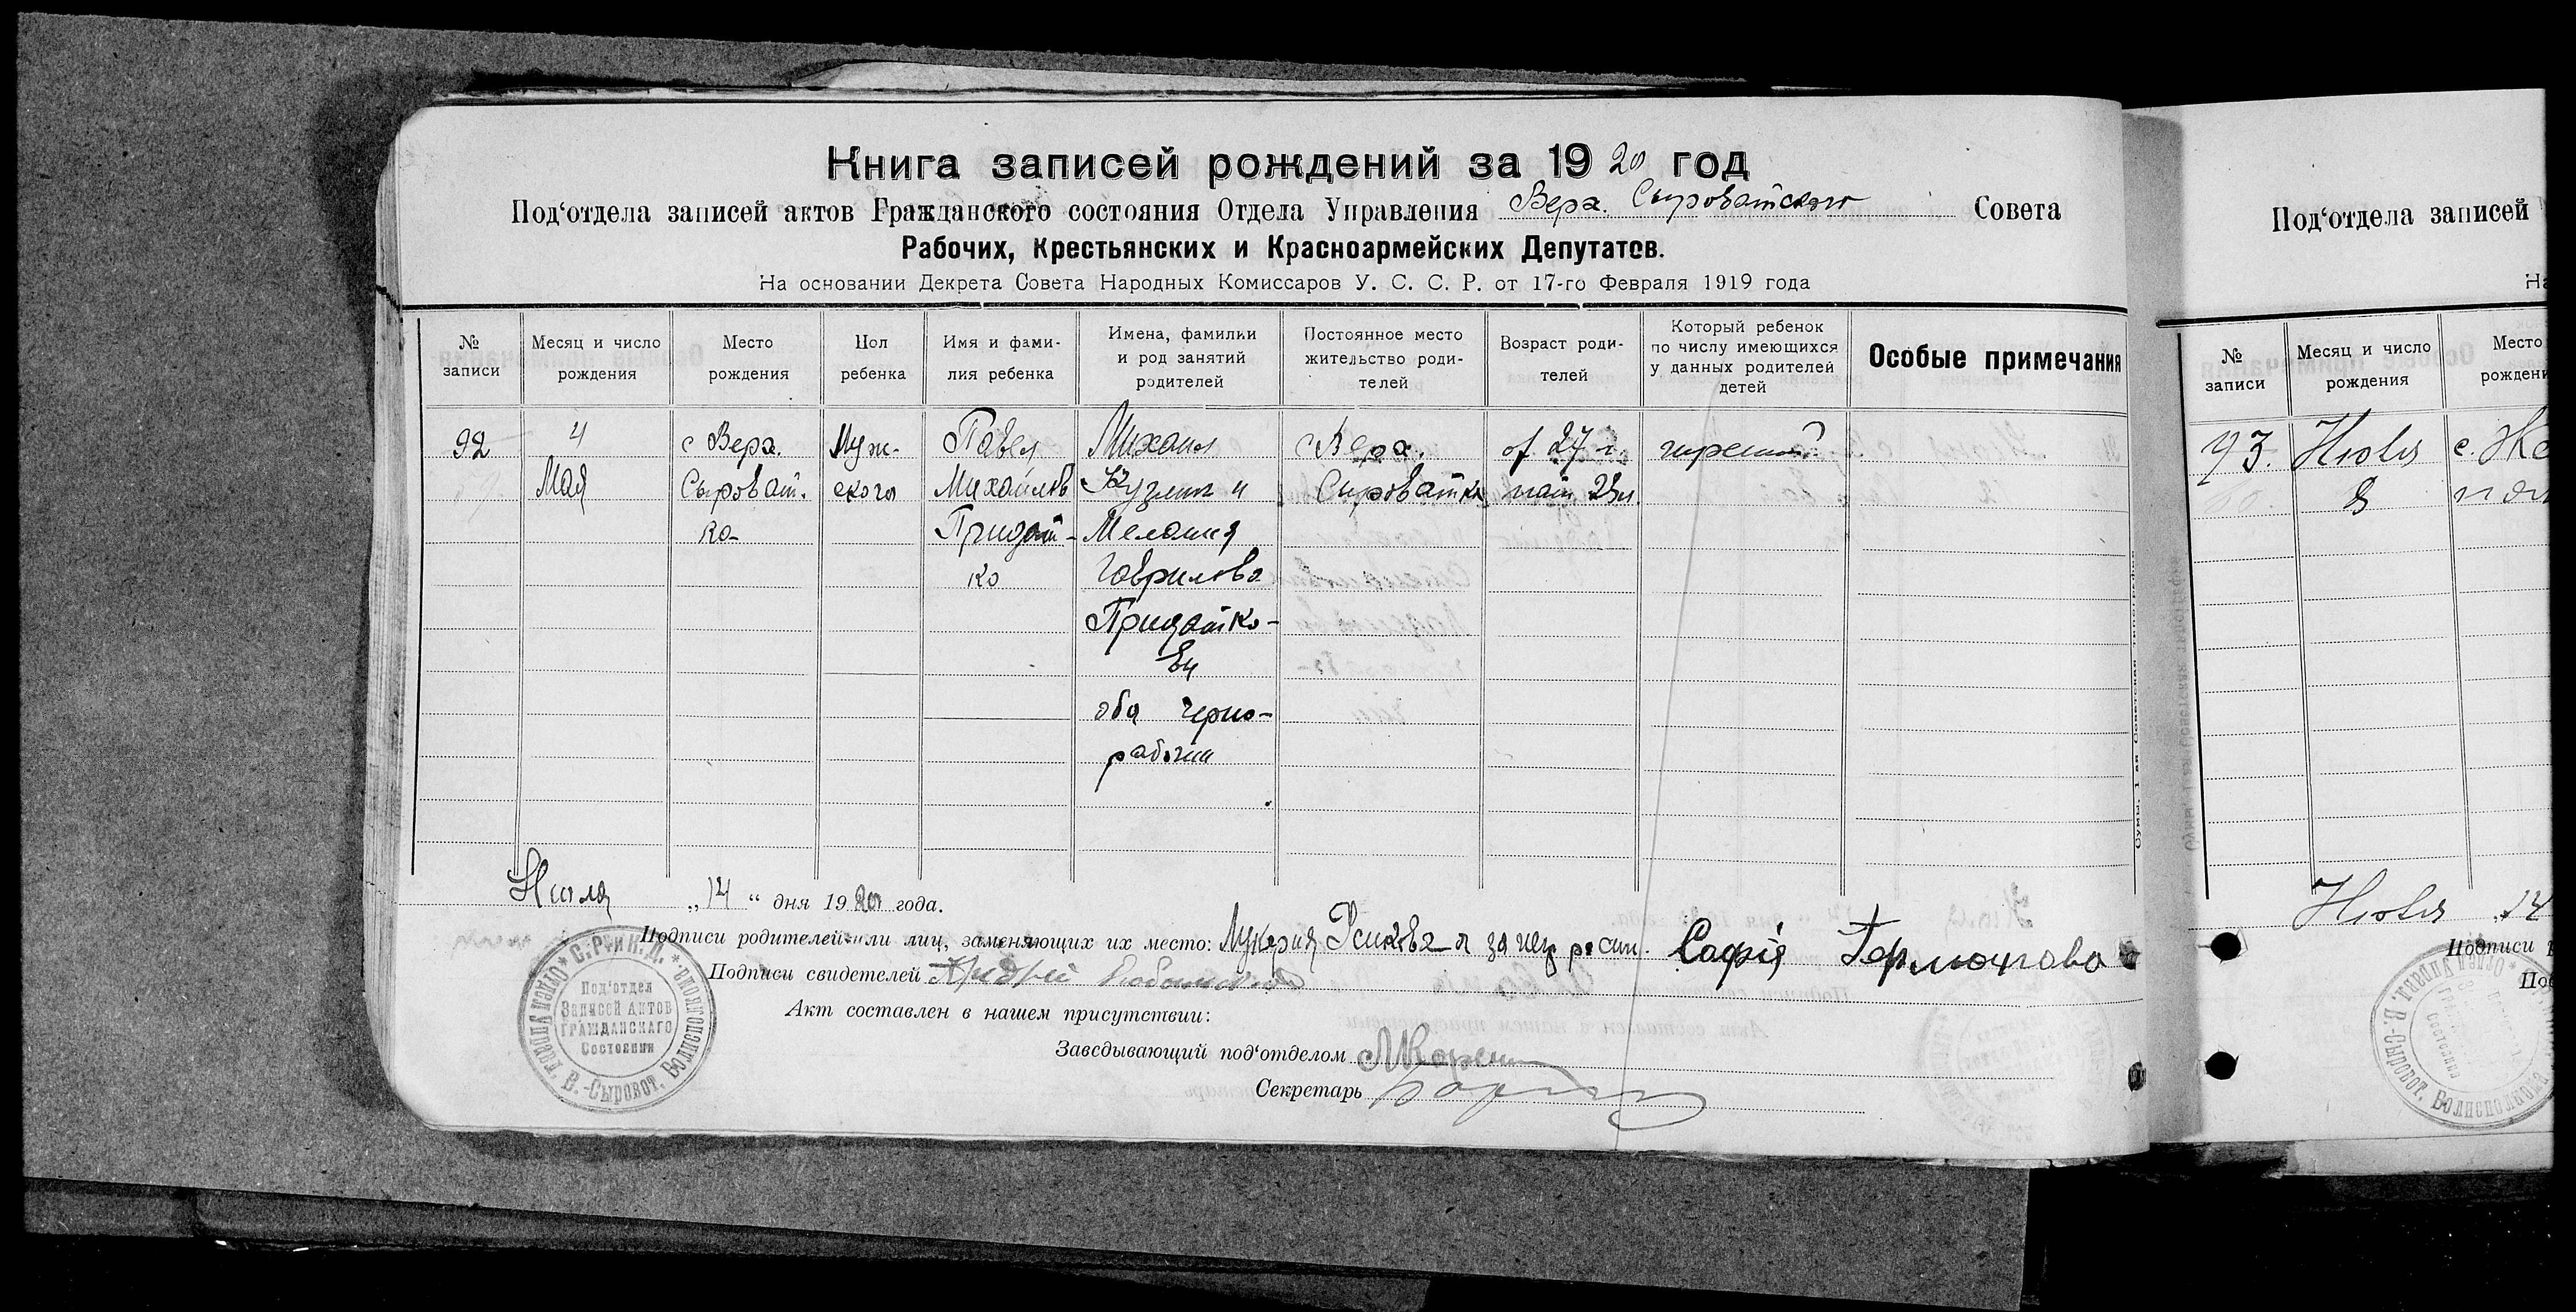 Книга записей рождений за 1920 год
Под‘отдела записей актов Гражданского состояния Отдела Управления Верх. Сыроватского Совета
Рабочих, Крестьянских и Красноармейских Депутатов.
На основании Декрета Совета Народных Комиссаров У. С. С. Р. от 17-го Февраля 1919 года
№ записи
Месяц и число рождения
Место рождения
Пол ребенка
Имя и фами-
лия ребенка
Имена, фамилии
и род занятий
родителей
Постоянное место
жительство роди-
телей
Возраст роди-
телей
Который ребенок
по числу имеющихся
у данных родителей
детей
Особые примечания
92
4
Мая
с Верх.
Сыроват.
ка-
Муж-
ского
Павел
Михайлов
Придат-
ко
Михаил
Кузмич и
Мелания
Гаврилова
Придатко-
вы
оба черно-
рабочии
с Верх.
Сыроватка
от 27 л.
мат 23 л.
Июля „14“ дня 1920 года.
Подписи родителей или лиц, заменяющих их место: Лукерия за негр росп. Софія
Подписи свидетелей Андрей
Акт составлен в нашем присутствии:
Заведывающий под‘отделом
Секретарь
С. Р. и К. Д. * Отдел Управл. В.-Сыровот. Волисполкома *
Под‘отдел
Записей Актов
Гражданскаго
Состояния
Под‘отдела записей
На
№ записи
Месяц и число рождения
Место
рожден
93.
Июля
8
с.
Июля 14
Подписи
По